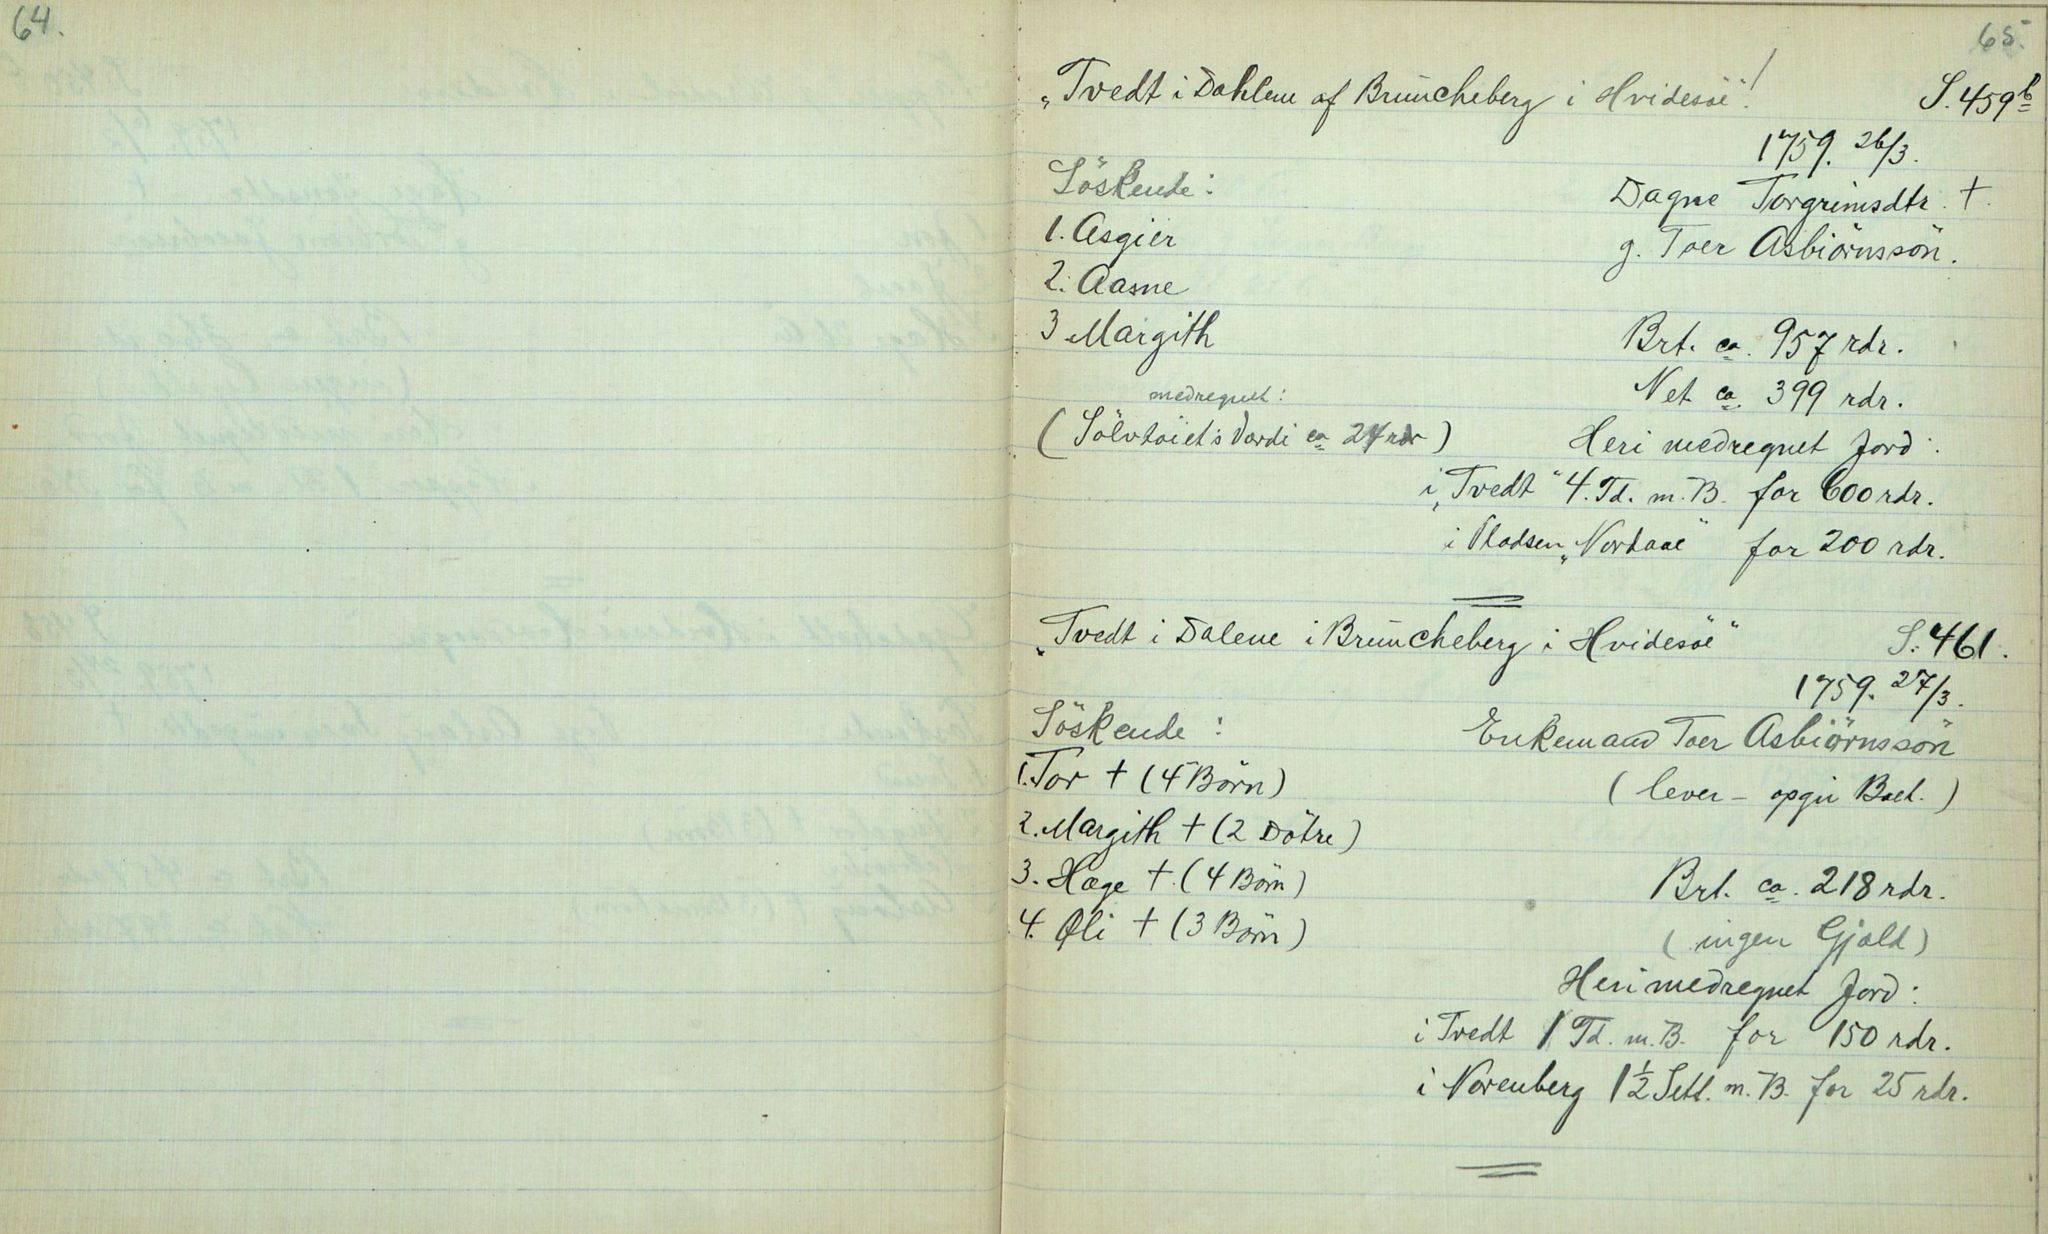 64.
65.
„Tvedt i Dahlene af Brüncheberg i Hvidesöe"!
S. 459 b
1759. 26/3.
Söskende:
Dagne Torgrimsdtr. †.
1. Asgier
g. Toer Asbiörnssön.
2. Aasne
3 Margith
Brt. ca. 957 rdr.
Net ca. 399 rdr.
medregnet:
(Sölvtöiet's Værdi ca 24 rdr)
Heri medregnet Jord:
i „Tvedt" 4. Td. m. B. for 600 rdr.
i Pladsen „Nortaae" for 200 rdr.
„Tvedt i Dalene i Brüncheberg i Hvidesöe"
S. 461.
1759. 27/3.
Söskende:
Enkemand Toer Asbiörnssön
1. Tor † (4 Börn)
(lever - opgir Boet.)
2. Margith † (2 Dötre)
3. Hæge †. (4 Börn)
Brt. ca. 218 rdr.
4. Oli † (3 Börn)
(ingen Gjæld)
Heri medregnet Jord:
i Tvedt 1 Td. m. B. for 150 rdr.
i Norenberg 1½ Setl. m. B. for 25 rdr.